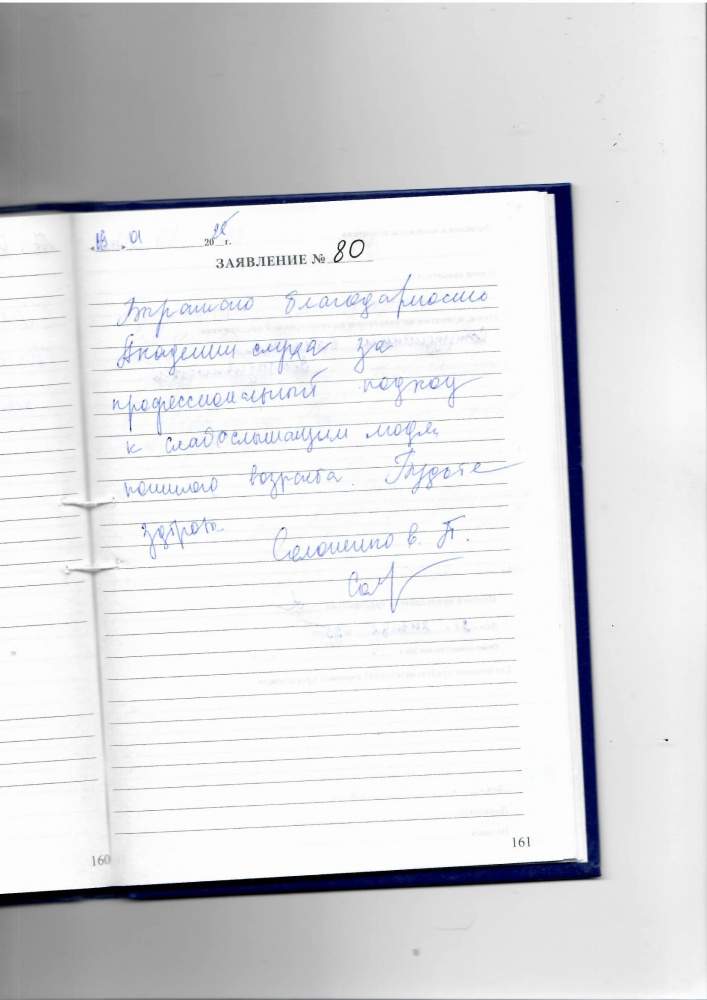 01 20 г.
ЗАЯВЛЕНИЕ № 80
благодарность
Академии слуха за
профессиональный подход
к слабослышащим людям
пожилого возраста. Будьте
здоровы
В. П.
160
161